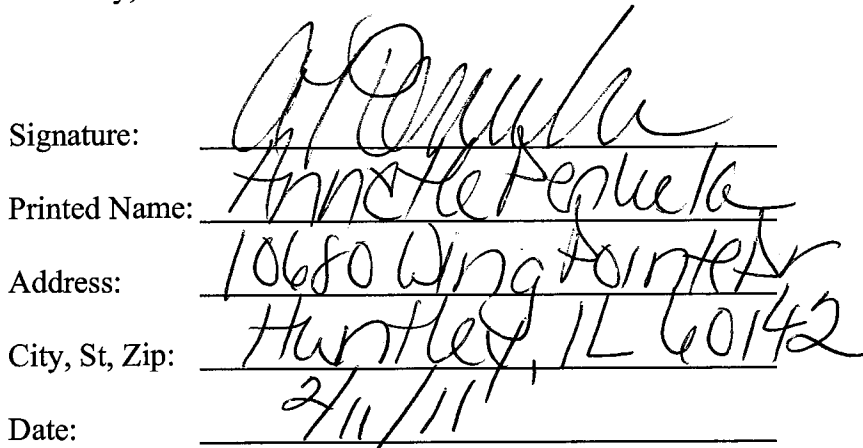 Signature:
Printed Name: Annette
Address: 10680 Wing Pointe Dr
City, St, Zip: Huntley, IL 60142
Date: 2/11/11